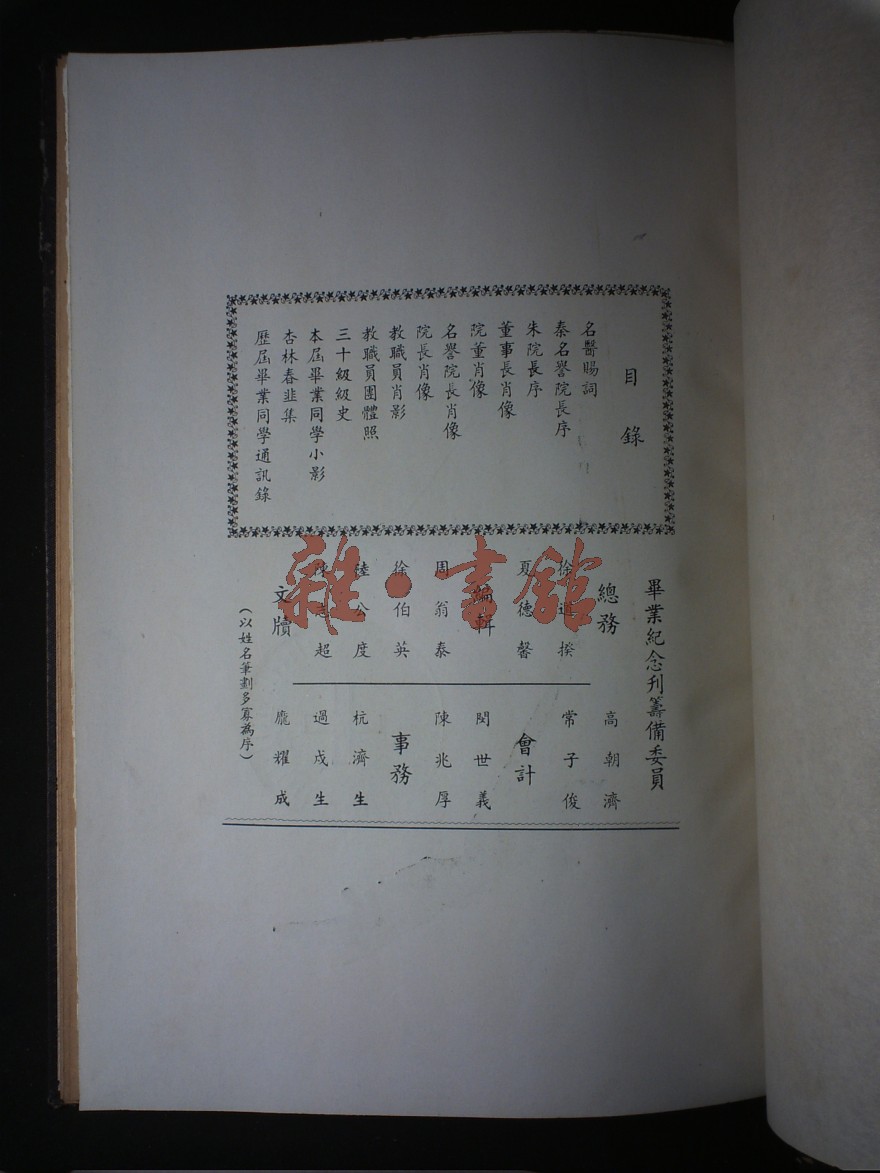 目錄
名醫賜詞
秦名譽院長序
朱院長序
董事長肖像
院董肖像
名譽院長肖像
院長肖像
教職員肖影
教職員團體照
三十級級史
本屆畢業同學小影
杏林春韭集
歷屆畢業同學通訊錄
畢業紀念刊籌備委員
總務
徐道揆
夏德馨
編輯
周翁泰
徐伯英
陸公度
陳志超
文牘
高朝濟
常子俊
會計
閔世義
陳兆厚
事務
杭濟生
過戍生
龐耀成
(以姓名筆劃多寡為序)
雜·書館